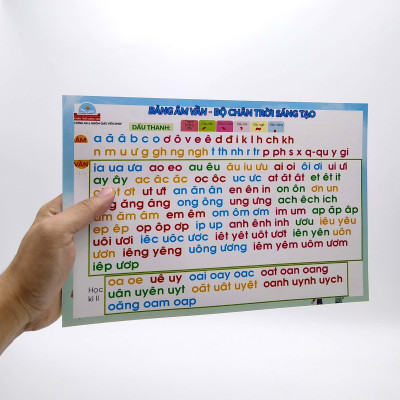 BẢNG ÂM VẦN - BỘ CHÂN TRỜI SÁNG TẠO
DẤU THANH:
ÂM
a ă â b c o ơ ô v e ê d đ i k l h ch kh
n m u ư g gh ng ngh t th nh r tr p ph s x q-qu y gi
VẦN
ia ua ưa ao eo au êu âu iu ưu ai oi ôi ơi ui ưi
ay ây ac ăc âc oc ôc uc ưc at ăt ât et êt it
ot ôt ơt ut ưt an ăn ân en ên in on ôn ơn un
ang ăng âng ong ông ung ưng ach êch ich
am ăm âm em êm om ôm ơm im um ap ăp âp
ep êp op ôp ơp ip up anh ênh inh ươu iêu yêu
uôi ươi iêc uôc ươc iêt yêt uôt ươt iên yên uôn
ươn iêng yêng uông ương iêm yêm uôm ươm
iêp ươp
oa oe uê uy oai oay oac oat oan oang
uân uyên uyt oăt uât uyêt oanh uynh uych
oăng oam oap
Học
kì II